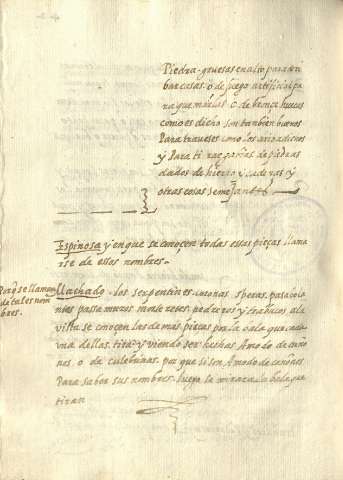 Piedra gruesas en alto para deri
bar casas. o de fuego artificial pa
ra quemarlas. o de bronçe huecas
como es dicho son tanbien buenos
Para traveses como los arriba dichos
y Para tirar çestas de piedras
dados de hierro y cadenas y
otras cosas semejantes
Espinosa y en que se conoçen todas essas pieças llama
rse de essos nonbres.
Porq se llaman
de tales nom
bres.
Machado. los serpentines cutanas speras, pasabola
ntes passamuros moteretes. pedreros y trabucos a la
vista se conoçen las demas pieças por la bala que cada
una dellas tira. y viendo ser hechas A modo de caño
nes. o de culebrinas. por que si son A modo de cañones
Para saber sus nonbres. luego la miraza. la bala que
tiran